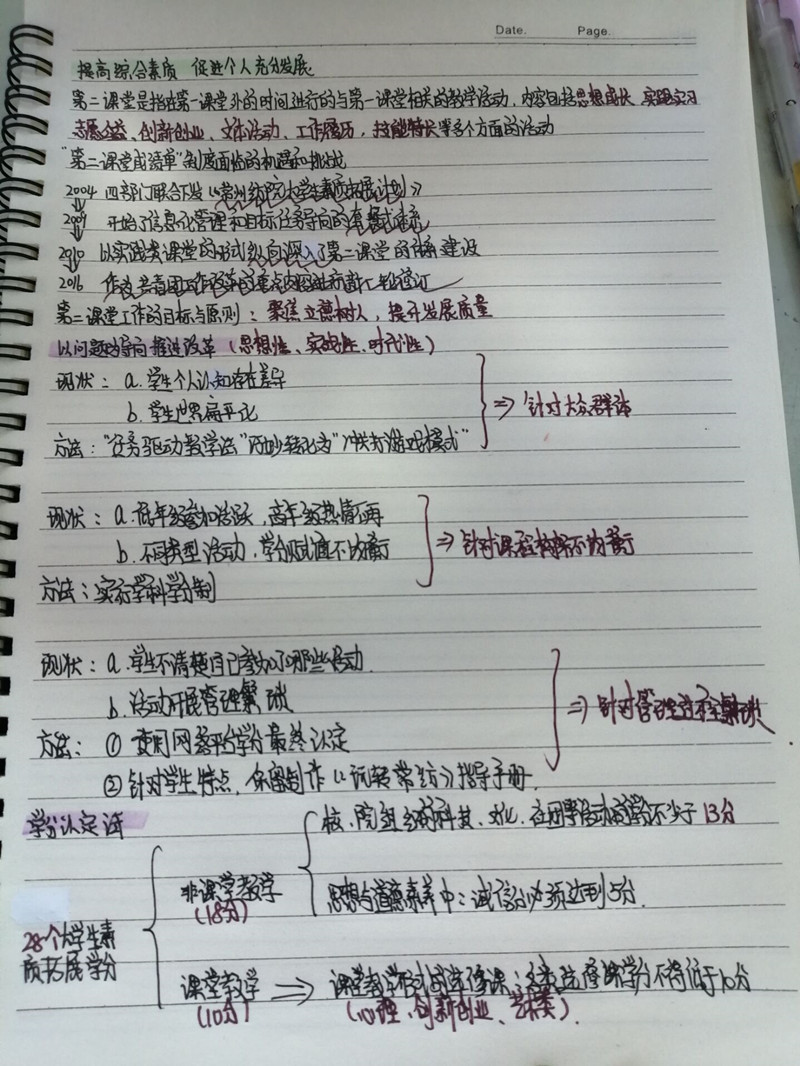 Date. Page.
提高综合素质 促进个人充分发展
第二课堂是指在第一课堂外的时间进行的与第一课堂相关的教学活动，内容包括思想成长、实践实习
志愿公益、创新创业、文体活动、工作履历、技能特长等多个方面的活动
"第二课堂成绩单"制度面临的机遇和挑战
2004 四部门联合下发《常州纺院大学生素质拓展计划》
2009 开始了信息化管理和目标任务导向的
2010 以实践类课堂的形式纵向深入了第二课堂的体系建设
2016 作为共青团工作改革的重点内容进行
第二课堂工作的目标与原则：聚焦立德树人，提升发展质量
以问题为导向推进改革（思想性、实践性、时代性）
现状：a.学生个人认知存在差异
b.学生世界扁平化 ⇒针对大众群体
方法："任务驱动教学法"巧妙转化为"冲关打游戏模式"
现状：a.低年级参加活跃，高年级热情不再
b.不同类型活动，学分赋值不均衡 ⇒针对课程构标不均衡
方法：实行学科学分制
现状：a.学生不清楚自己参加了哪些活动
b.活动开展管理繁琐 ⇒针对管理过程繁琐
方法：①使用网络平台学分最终认定
②针对学生特点，保留制作《玩转常纺》指导手册.
学分认定
校、院组织的科技、文化、社团等活动的学分不少于13分
非课堂教学
(18分)
思想与道德素养中：诚信分必须达到5分.
28个大学生素
质拓展学分
课堂教学 ⇒ 课堂教学形式的选修课：各类选修课学分不得低于10分
(10分) (心理、创新创业、艺术类).